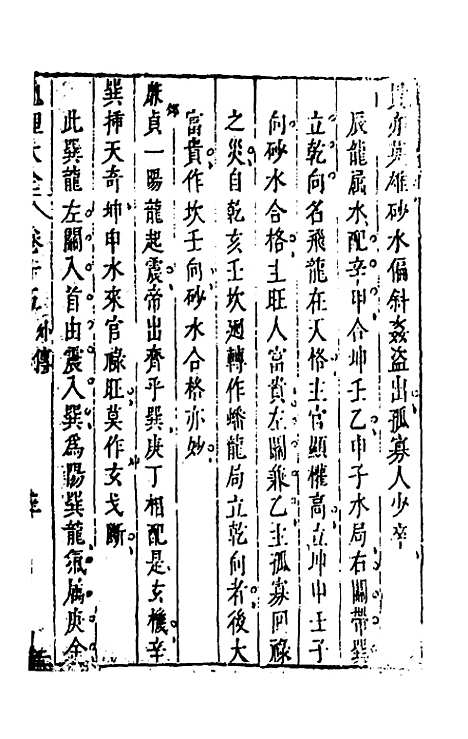 貴亦英雄砂水偏斜姦盗出孤寡人少辛
辰龍属水配辛甲合坤壬乙申子水局右關帶巽
立乾向名飛龍在天格主官顯權高立坤申壬子
向砂水合格主旺人富貴左關乘乙主孤寡回祿
之災自乾亥壬坎迴轉作蟠龍局立乾向者後大
富貴作坎壬向砂水合格亦妙
廉貞一陽龍起震帝出齊乎巽庚丁相配是玄機辛
巽揷天奇坤申水來官祿旺莫作玄戈斷
此巽龍左關入首由震入巽爲陽巽龍氣属庚金
地理大全 卷十五